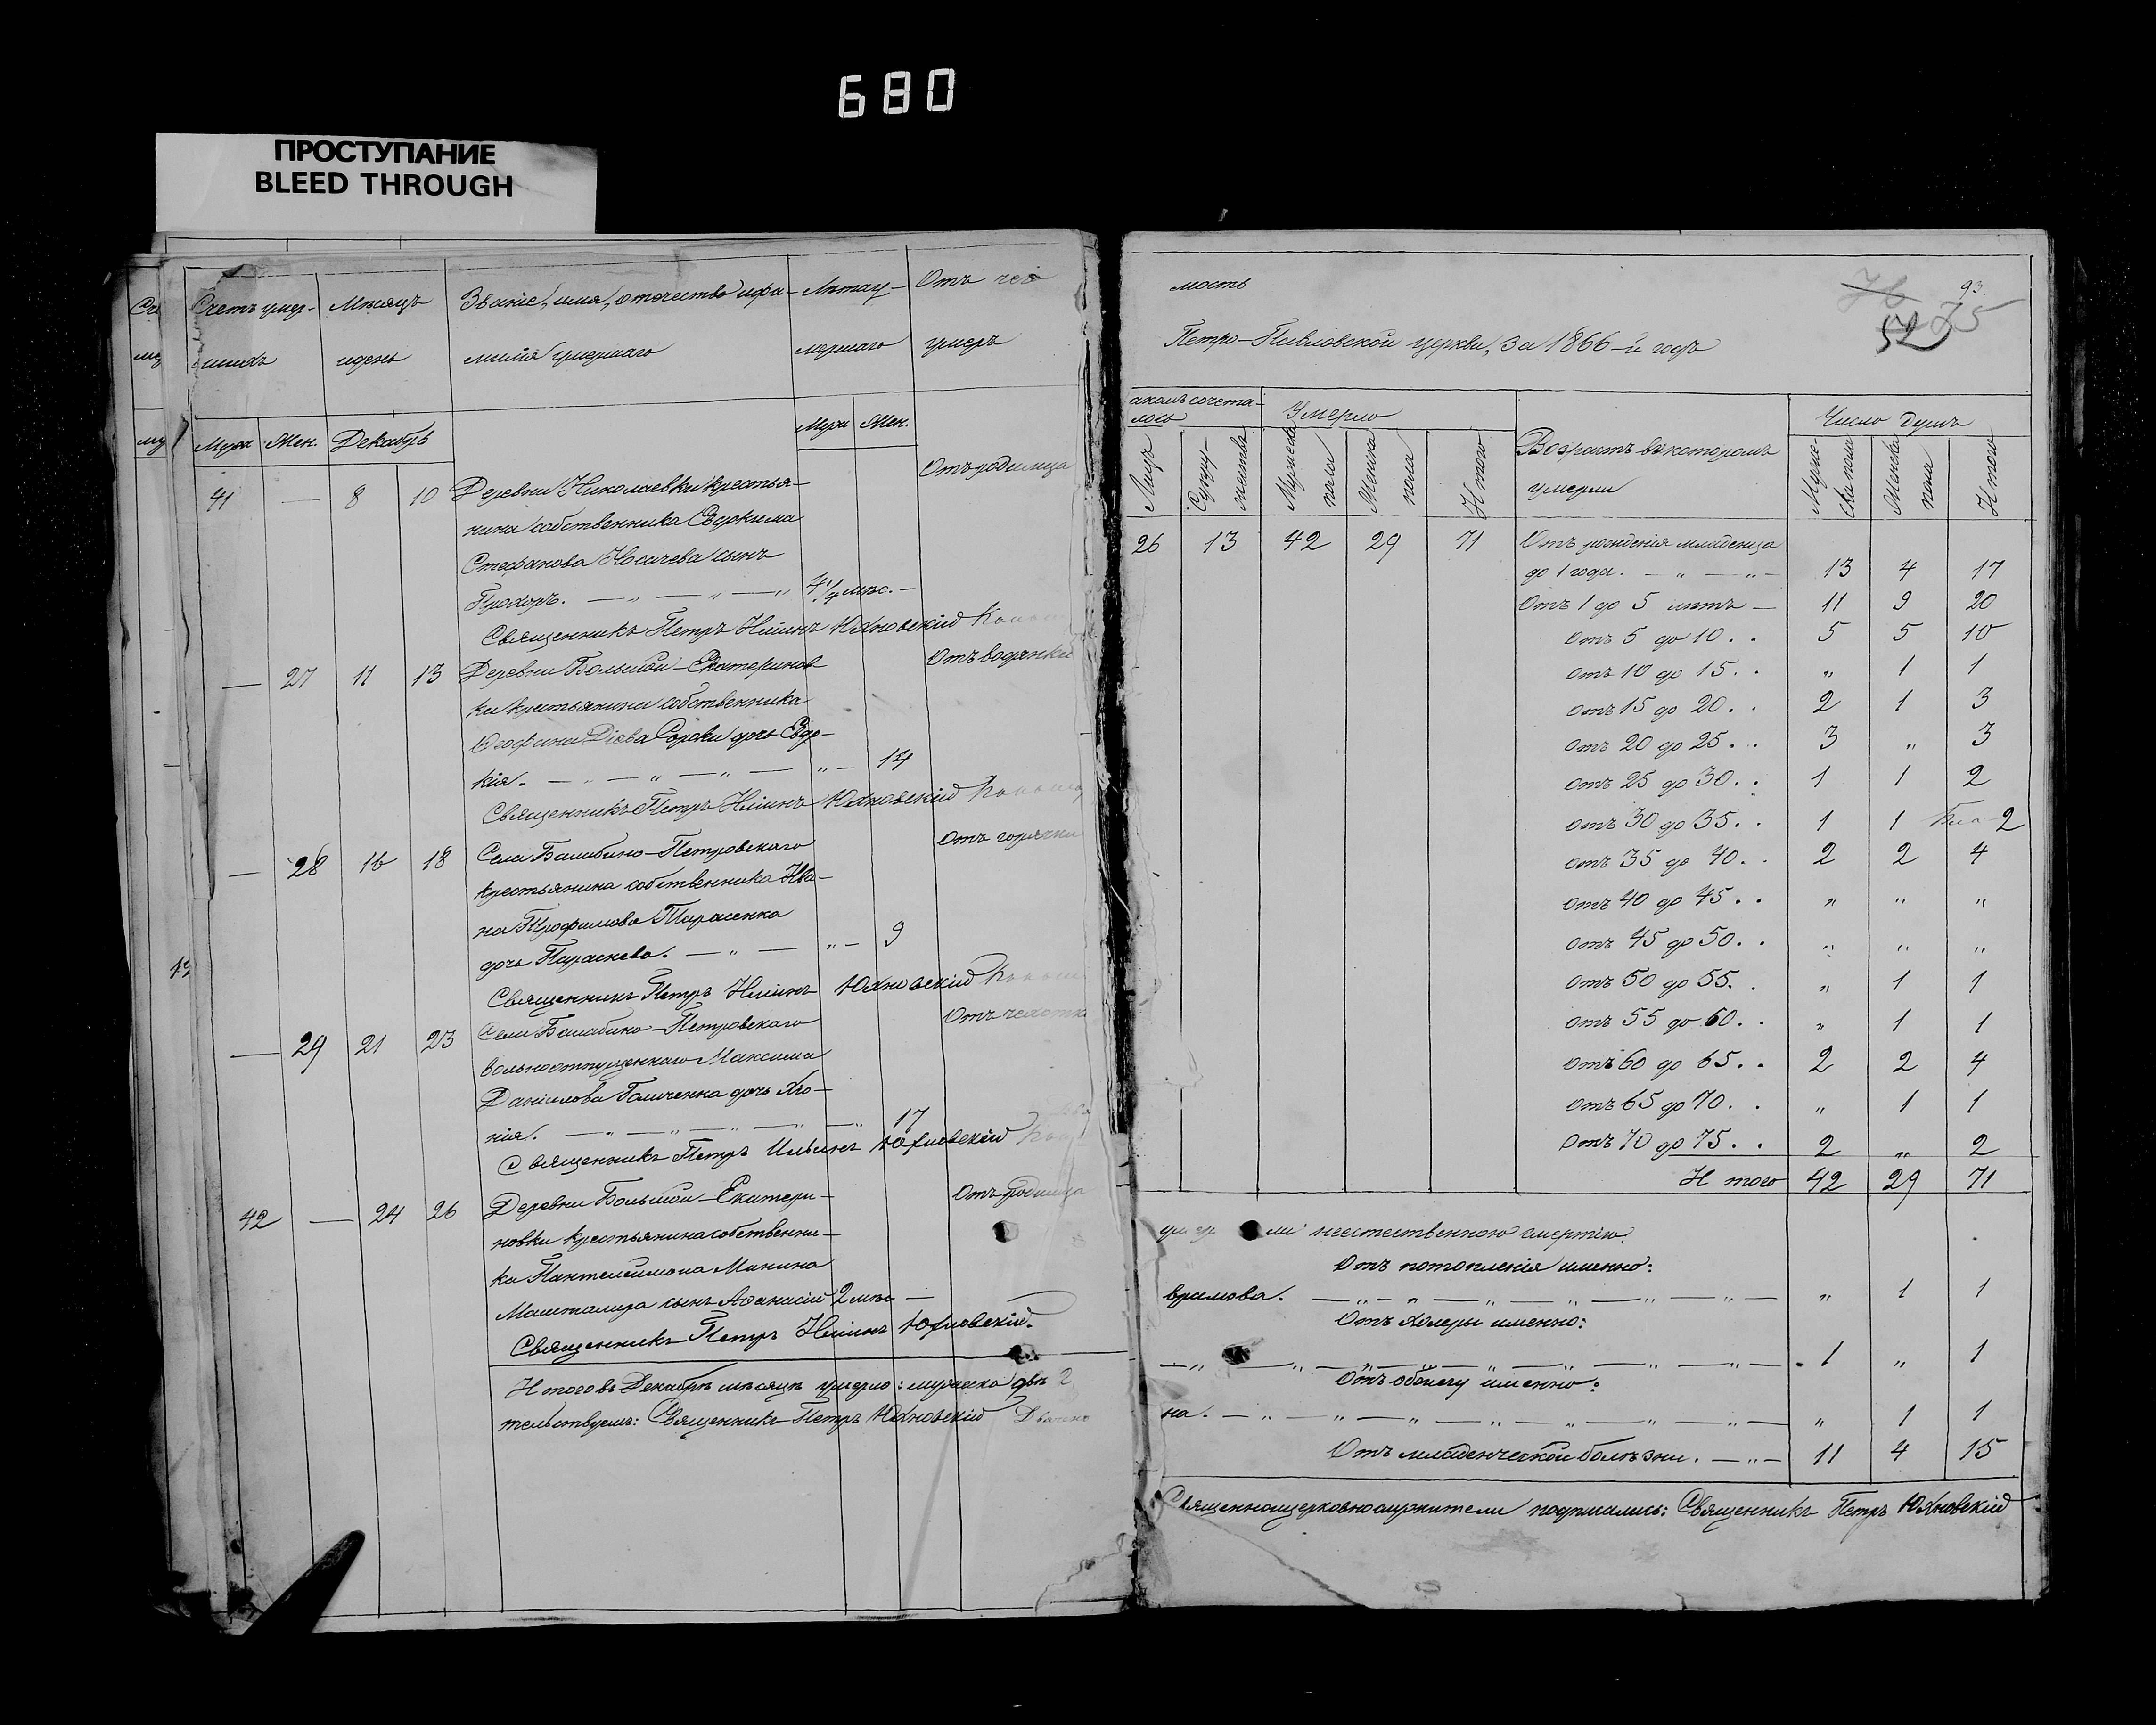 680
ПРОСТУПАНИЕ
BLEED THROUGH
Счетъ умер- Мѣсяцъ Званіе, имя, отчество и фа- Лѣта у- Отъ чего
шихъ и день милія умершаго мершаго умеръ
Муж Жен. Декабрь Муж Жен.
41 — 8 10 Деревни Николаевки крестья- Отъ родимца
нина собственника
Стефанова Носачева сынъ
Прохоръ. — „ — „ — „ 4 1/4 мѣс. —
Священникъ Петръ Ильинъ Юхновскій
— 27 11 13 Деревни Большой-Екатеринов Отъ водянки
ки крестьянина собственника
Сороки дочь Евдо-
кія. — „ — „ — „ — „ — 14
Священникъ Петръ Ильинъ Юхновскій
— 28 16 18 Села Балабино-Петровскаго Отъ горячки
крестьянина собственника Ива-
на Трофимова Тарасенка
дочь Параскева. — „ — „ — 9
Священникъ Петръ Ильинъ Юхновскій
— 29 21 23 Села Балабино-Петровскаго Отъ чахотки
вольноотпущеннаго Максима
Даніилова дочь
нія. — „ — „ — „ — „ 17
Священникъ Петръ Ильинъ Юхновскій
42 — 24 26 Деревни Большой-Екатери- Отъ родимца
новки крестьянина собственни-
ка Пантелеимона Минина
Машталира сынъ Аѳанасій 2 мѣс —
Священникъ Петръ Ильинъ Юхновскій.
Итого въ Декабрѣ мѣсяцѣ умерло: мужеска два 2,
тельствуемъ: Священникъ Петръ Юхновскій
мость
93.
52 75
Петро-Павловской церкви, за 1866-й годъ
акомъ сочета-
лось Умерло Возрастъ въ которомъ умерли Число душъ
Лицъ Супру-жествъ Мужеска пола Женска пола Итого Муже-ска пола Женска пола Итого
26 13 42 29 71 Отъ рожденія младенца
до 1 года. — „ — „ — 13 4 17
Отъ 1 до 5 лѣтъ — 11 9 20
Отъ 5 до 10. . 5 5 10
Отъ 10 до 15. . „ 1 1
Отъ 15 до 20. . 2 1 3
Отъ 20 до 25. . 3 „ 3
Отъ 25 до 30. . 1 1 2
Отъ 30 до 35. . 1 1 2
Отъ 35 до 40. . 2 2 4
Отъ 40 до 45. . „ „ „
Отъ 45 до 50. . „ „ „
Отъ 50 до 55. . „ 1 1
Отъ 55 до 60. . „ 1 1
Отъ 60 до 65. . 2 2 4
Отъ 65 до 70. . „ 1 1
Отъ 70 до 75. . 2 „ 2
Итого 42 29 71
ли неестественною смертію.
Отъ потопленія именно:
врилова. — „ — „ — „ — „ — „ — „ — „ 1 1
Отъ холеры именно:
— „ — „ — „ — „ — „ — „ — „ — 1 „ 1
Отъ обжегу именно:
на. — „ — „ — „ — „ — „ — „ — „ — „ 1 1
Отъ младенческой болѣзни. — „ — 11 4 15
Священноцерковнослужители подписались: Священникъ Петръ Юхновскій